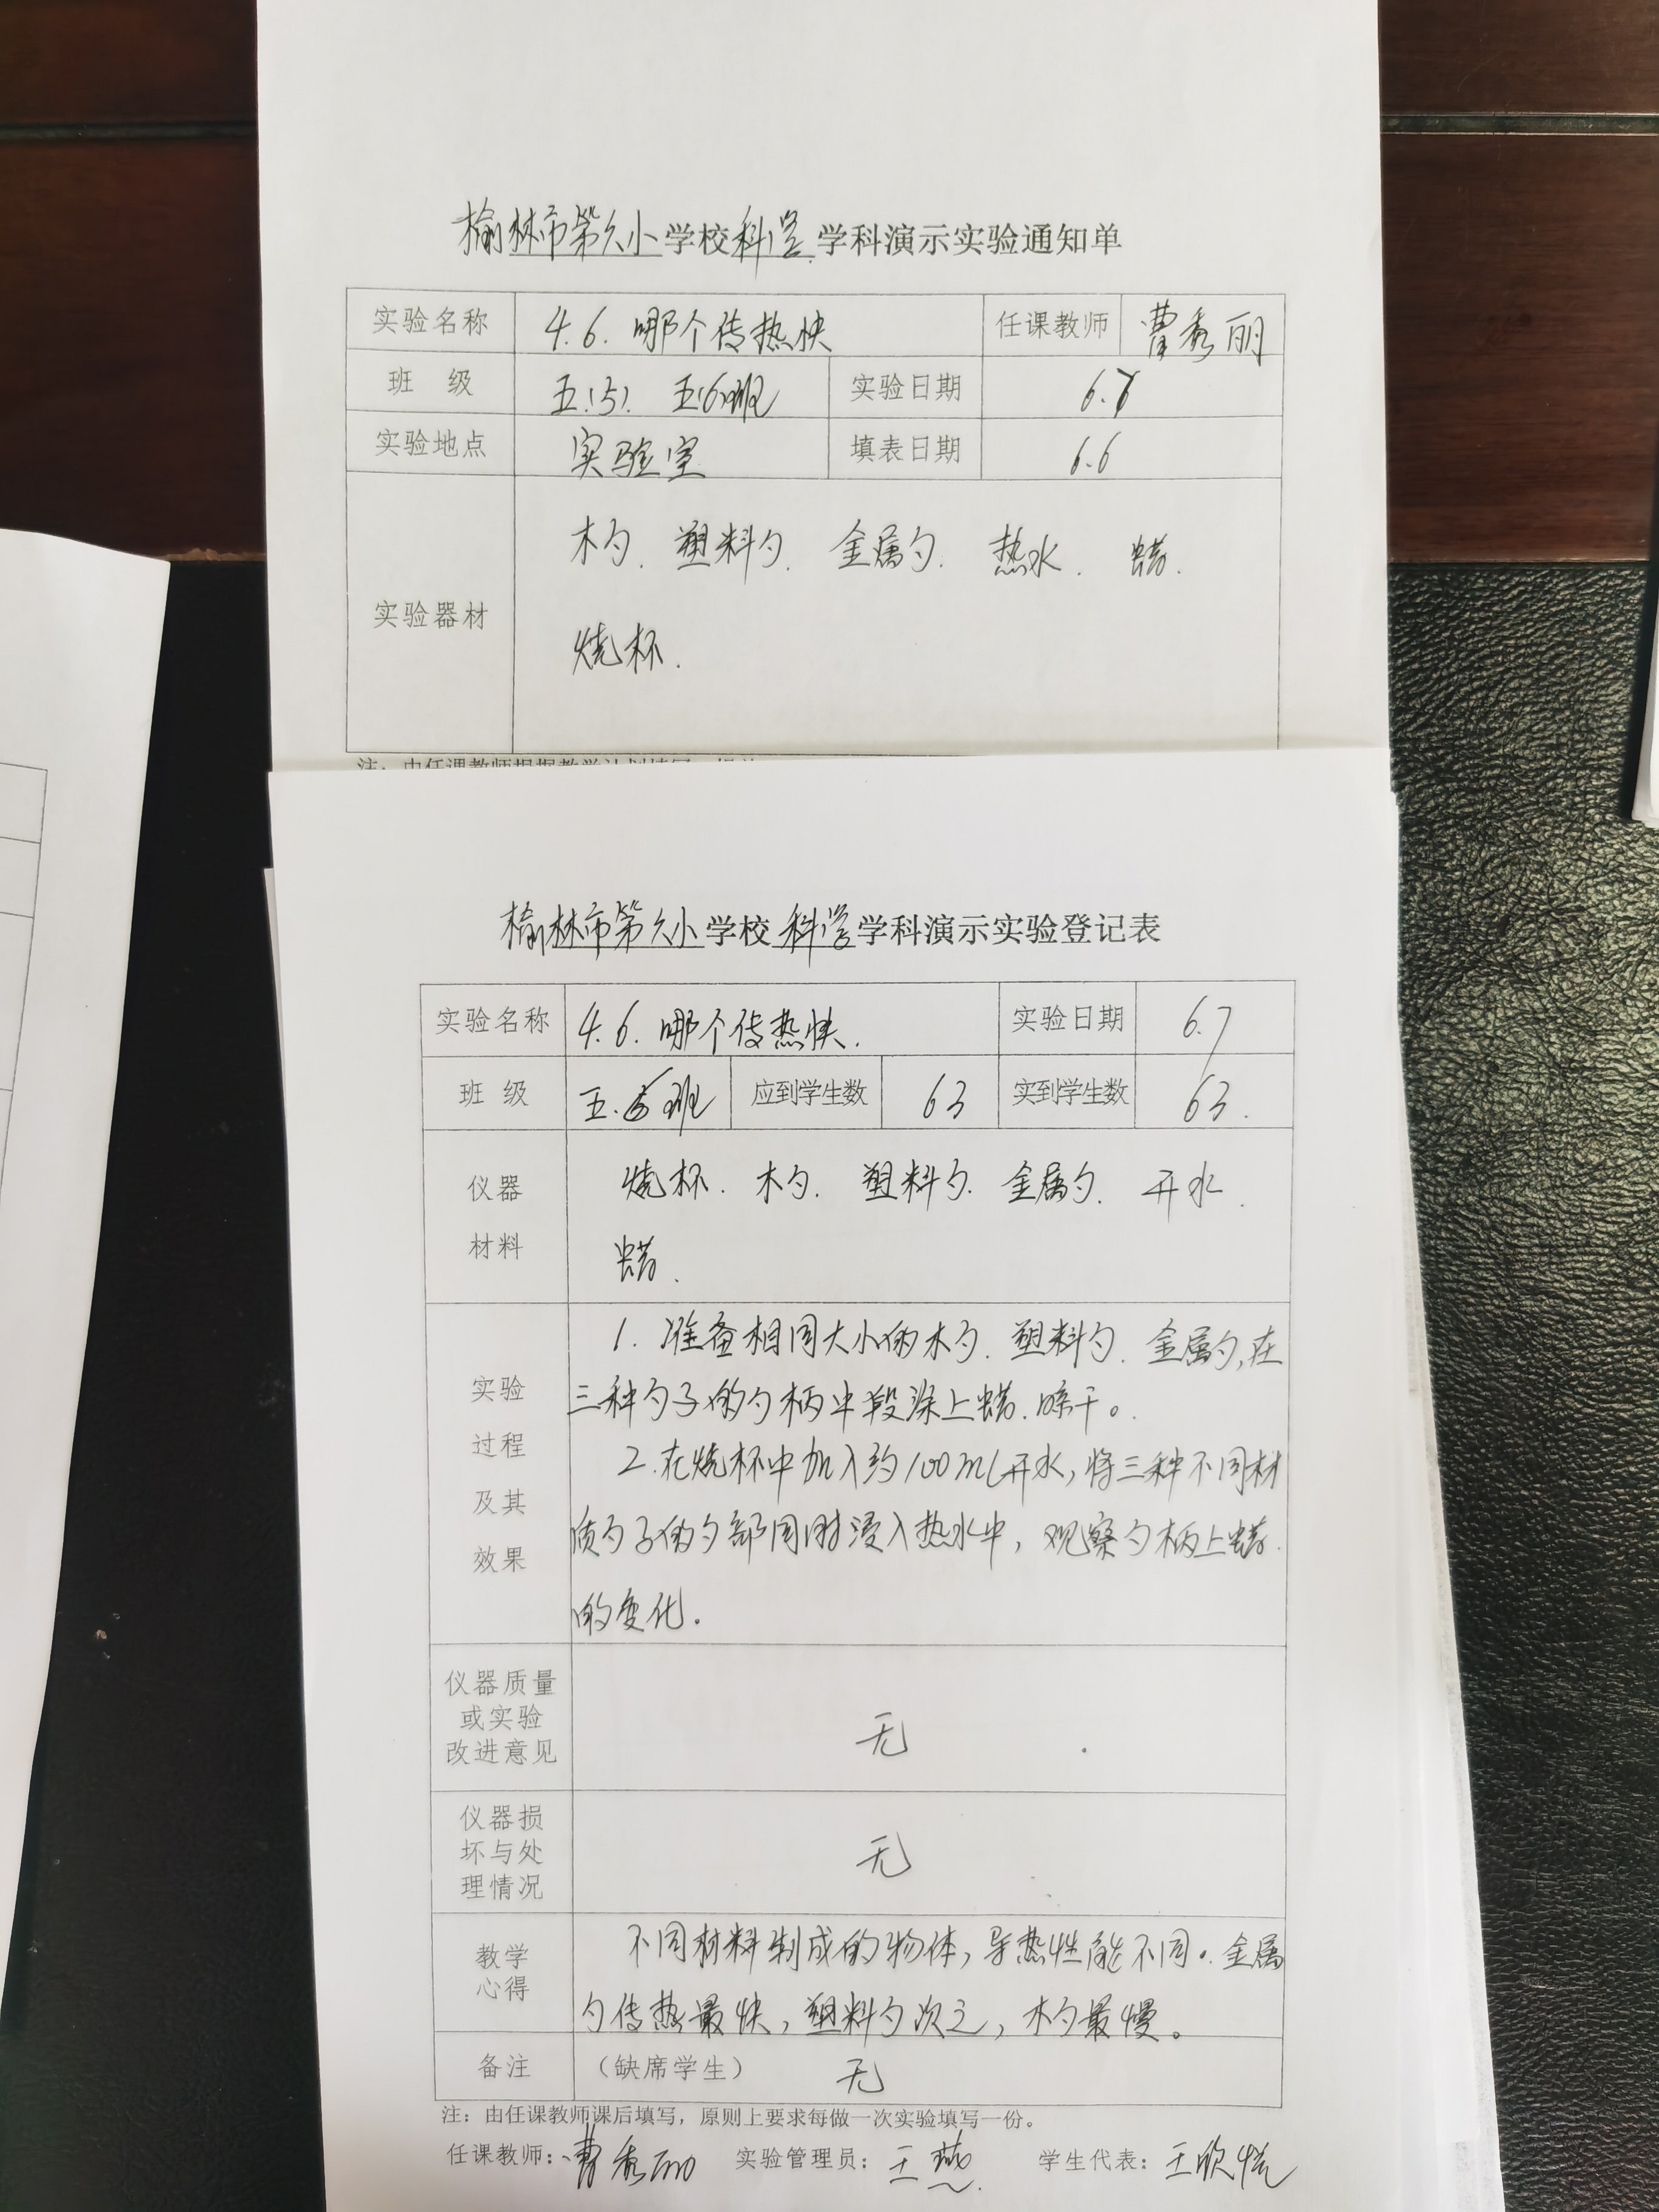 榆林市第六小学校科学学科演示实验通知单
实验名称 4.6.哪个传热快 任课教师 曹秀丽
班 级 五(5). 五(6)班 实验日期 6.7
实验地点 实验室 填表日期 6.6
木勺. 塑料勺. 金属勺. 热水. 蜡.
实验器材
烧杯.
榆林市第六小学校科学学科演示实验登记表
实验名称 4.6.哪个传热快. 实验日期 6.7
班 级 五.5班 应到学生数 63 实到学生数 63.
仪器 烧杯. 木勺. 塑料勺. 金属勺. 开水.
材料 蜡.
1.准备相同大小的木勺.塑料勺.金属勺,在
实验 三种勺子的勺柄中段涂上蜡.晾干。
过程 2.在烧杯中加入约100ml开水,将三种不同材
及其 质勺子的勺部同时浸入热水中,观察勺柄上蜡
效果 的变化.
仪器质量
或实验 无
改进意见
仪器损
坏与处 无
理情况
教学 不同材料制成的物体,导热性能不同。金属
心得 勺传热最快,塑料勺次之,木勺最慢。
备注 (缺席学生) 无
注:由任课教师课后填写,原则上要求每做一次实验填写一份。
任课教师:曹秀丽 实验管理员:王燕 学生代表:王欣悦